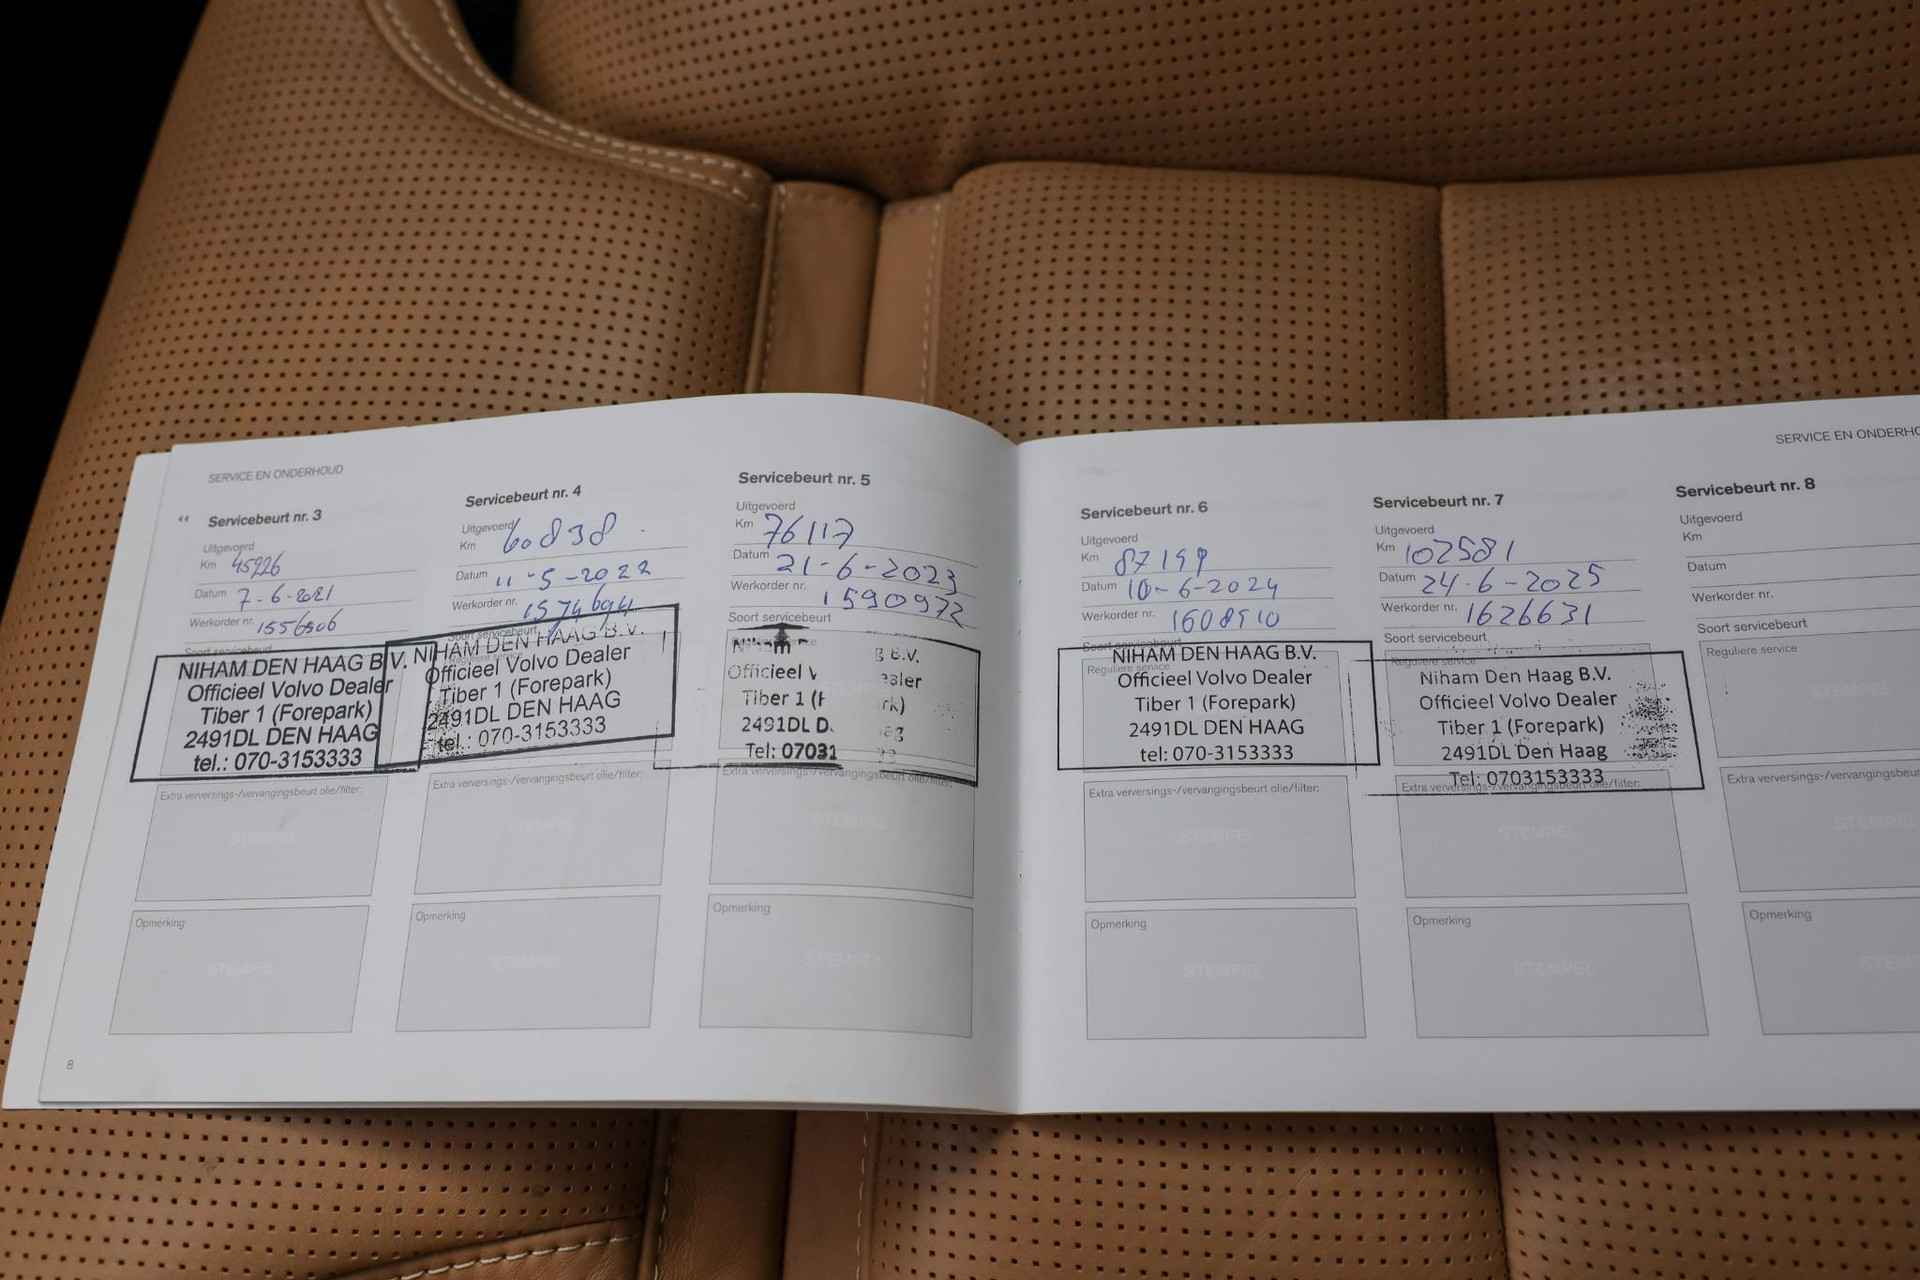 SERVICE EN ONDERHOUD
Servicebeurt nr. 3
Uitgevoerd
Km 45926
Datum 7-6-2021
Werkorder nr. 1556506
NIHAM DEN HAAG B.V.
Officieel Volvo Dealer
Tiber 1 (Forepark)
2491DL DEN HAAG
tel.: 070-3153333
Extra verversings-/vervangingsbeurt olie/filter:
STEMPEL
Opmerking
STEMPEL
8
Servicebeurt nr. 4
Uitgevoerd
Km 60838
Datum 11-5-2022
Werkorder nr. 1574694
Soort servicebeurt
NIHAM DEN HAAG B.V.
Officieel Volvo Dealer
Tiber 1 (Forepark)
2491DL DEN HAAG
tel.: 070-3153333
Extra verversings-/vervangingsbeurt olie/filter:
STEMPEL
Opmerking
STEMPEL
Servicebeurt nr. 5
Uitgevoerd
Km 76117
Datum 21-6-2023
Werkorder nr. 1590972
Soort servicebeurt
B.V.
Officieel
Tiber 1
2491DL
Tel: 07031
Extra verversings-/vervangingsbeurt olie/filter:
STEMPEL
Opmerking
STEMPEL
Servicebeurt nr. 6
Uitgevoerd
Km 87199
Datum 10-6-2024
Werkorder nr. 1608910
Soort servicebeurt
Reguliere service
NIHAM DEN HAAG B.V.
Officieel Volvo Dealer
Tiber 1 (Forepark)
2491DL DEN HAAG
tel: 070-3153333
Extra verversings-/vervangingsbeurt olie/filter:
STEMPEL
Opmerking
STEMPEL
SERVICE EN ONDERHO
Servicebeurt nr. 7
Uitgevoerd
Km 102581
Datum 24-6-2025
Werkorder nr. 1626631
Soort servicebeurt
Reguliere service
Niham Den Haag B.V.
Officieel Volvo Dealer
Tiber 1 (Forepark)
2491DL Den Haag
Tel: 0703153333
Extra verversings-/vervangingsbeurt olie/filter:
STEMPEL
Opmerking
STEMPEL
Servicebeurt nr. 8
Uitgevoerd
Km
Datum
Werkorder nr.
Soort servicebeurt
Reguliere service
STEMPEL
Extra verversings-/vervangingsbeurt
STEMPEL
Opmerking
STEM